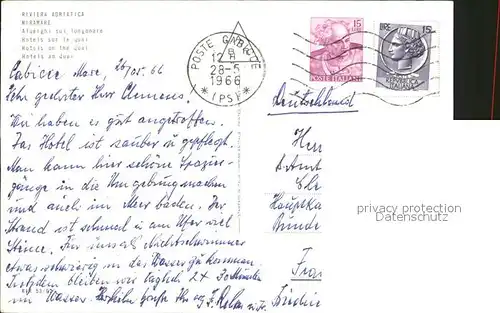 RIVIERA ADRIATICA
MIRAMARE
Alberghi sul lungomare
Hotels sur le quai
Hotels on the Quai
Hotels am Quai
POSTE GABICCE
28-5
1966
* (PS) *
15
LIRE 15
POSTE ITALIANE
Cabicce Mare, 26/05. 66
Sehr geehrter Herr Clemens.
Wir haben es gut angetroffen.
Das Hotel ist sauber u gepflegt.
Man kann hier schöne Spazier-
gänge in die Umgebung machen
und auch im Meer baden. Der
Strand ist schmal u am Ufer viel
Steine. Für uns als Nichtschwimmer
etwas schwierig in das Wasser zu kommen.
Trotzdem bleiben wir täglich 2x 30 Minuten
im Wasser. Herzliche Grüße Ihr
Deutschland
Herr
Haupt
privacy protection
Datenschutz